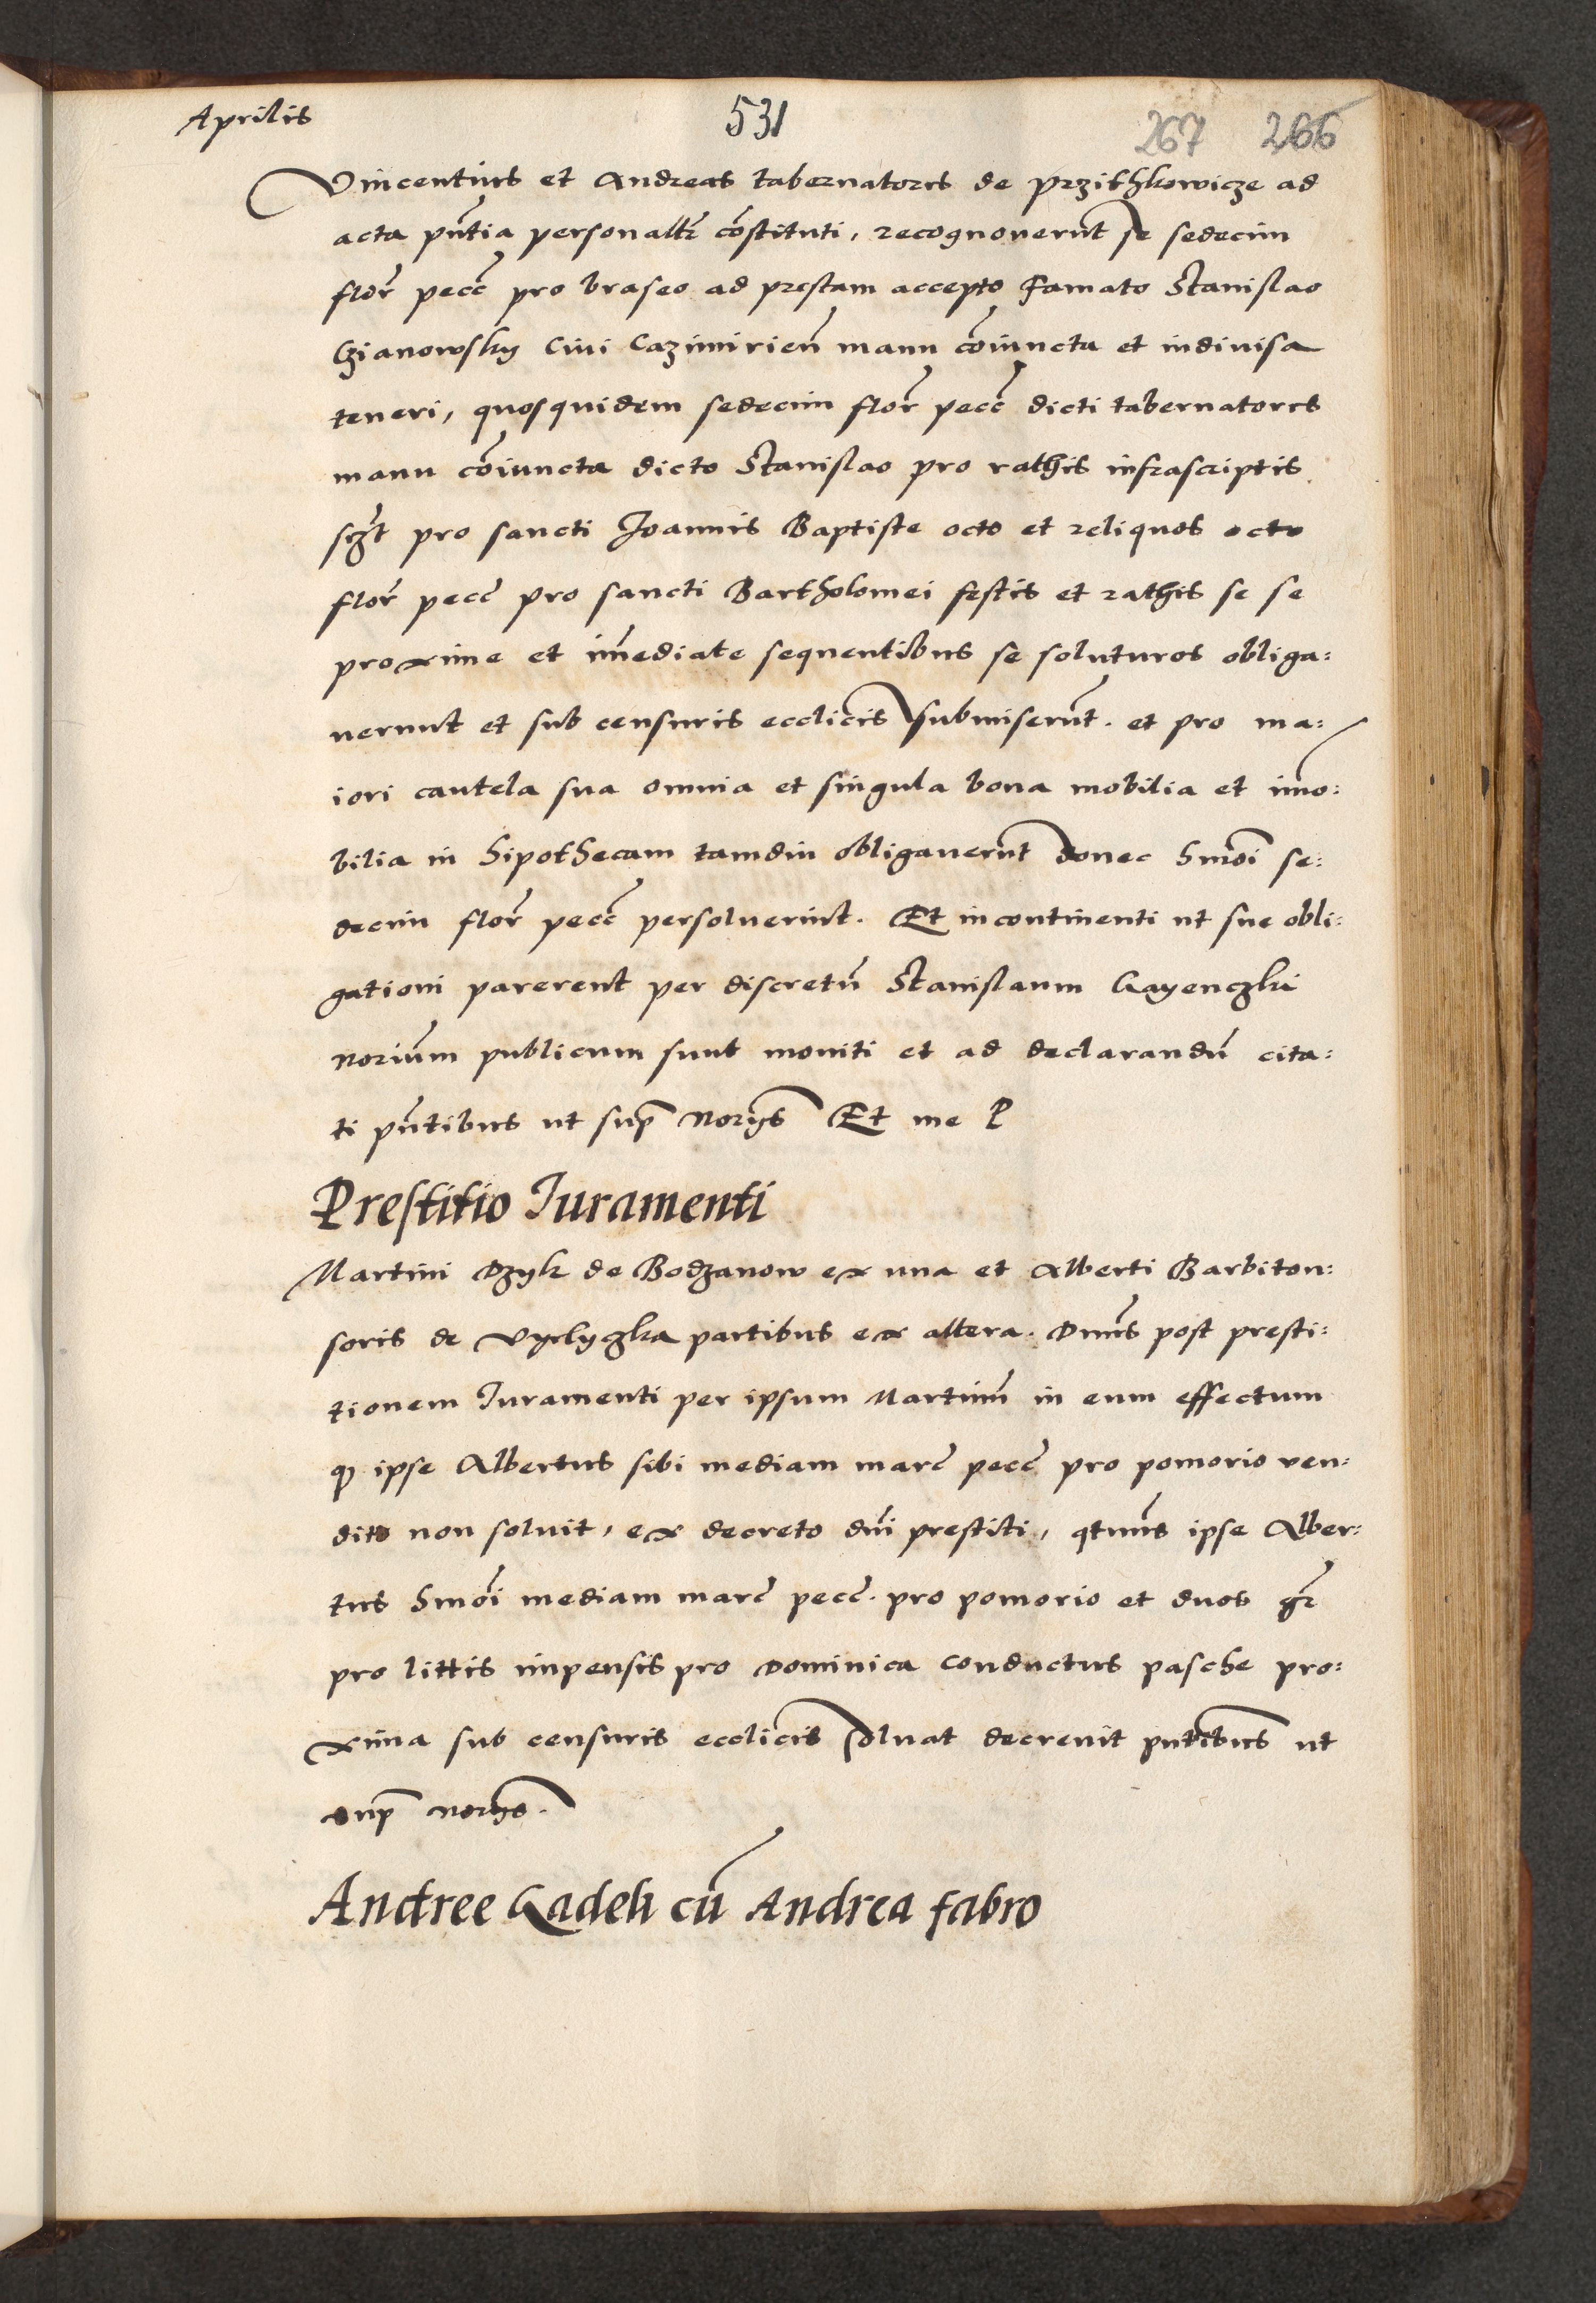 Aprilis
531
267 266
Vincentius et Andreas tabernatores de Przithkowicze ad
acta pn̄tia personalr̄ cōstituti, recognoverūt se sedecim
florꝭ pecc̄ pro braseo ad prestam accepto Famato Stanislao
Czianowsky Civi Cazimirien̄ manu cōiuncta et indivisa
teneri, quosquidem sedecim florꝭ pecc̄ dicti tabernatores
manu cōiuncta dicto Stanislao pro rathis infrascriptis
scz̄t pro sancti Joannis Baptiste octo et reliquos octo
florꝭ pecc̄ pro sancti Bartholomei festis et rathis se se
proxime et im̄ediate sequentibus se soluturos obliga:
verunt et sub censuris ecclīcis submiserūt. et pro ma:
iori cautela sua omnia et singula bona mobilia et im̄o:
bilia in hipothecam tamdiu obligaverūt donec hm̄oi se:
decim florꝭ pecc̄ persolverint. Et incontinenti ut sue obli:
gationi parerent per discretū Stanislaum Gayenczki
norium̄ publicum sunt moniti et ad declarandū cita:
ti pn̄tibus ut sup̄ noriis̄ Et me P
Prestitio Juramenti
Martini Dzyk de Bodzanow ex una et Alberti Barbiton:
soris de Vyelyczka partibus ex altera. Dn̄us post presti:
tionem Juramenti per ipsum Martinū in eum effectum
qꝫ ipse Albertus sibi mediam marc̄ pecc̄ pro pomorio ven:
dito non solvit, ex decreto dn̄i prestiti, qten̄us ipse Alber:
tus hm̄oi mediam marc̄ pecc̄. pro pomorio et duos gr̄
pro litt̄is impensis pro Dominica conductus pasche pro:
xima sub censuris ecclīcis solvat decrevit pn̄tibus ut
sup̄ noriis̄.
Andree Gadek cū Andrea fabro